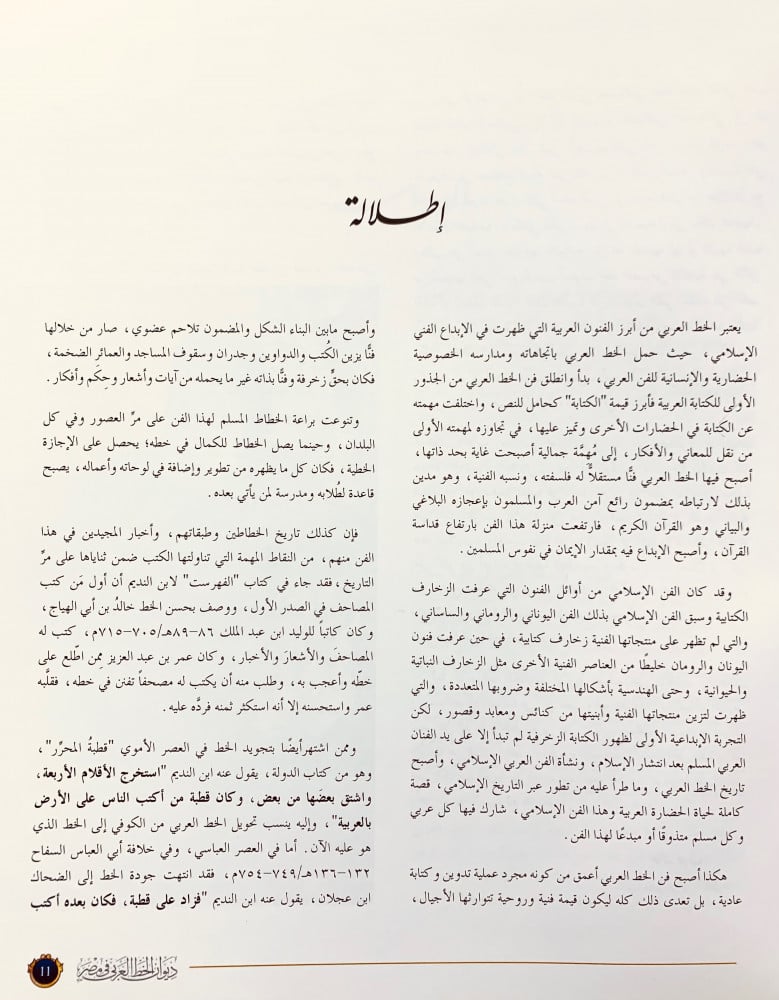 إطلالة
يعتبر الخط العربي من أبرز الفنون العربية التي ظهرت في الإبداع الفني
الإسلامي، حيث حمل الخط العربي باتجاهاته ومدارسه الخصوصية
الحضارية والإنسانية للفن العربي، بدأ وانطلق فن الخط العربي من الجذور
الأولى للكتابة العربية فأبرز قيمة "الكتابة" كحامل للنص، واختلفت مهمته
عن الكتابة في الحضارات الأخرى وتميز عليها، في تجاوزه لمهمته الأولى
من نقل للمعاني والأفكار، إلى مُهِمَّة جمالية أصبحت غاية بحد ذاتها،
أصبح فيها الخط العربي فنًّا مستقلاًّ له فلسفته، ونسبه الفنية، وهو مدين
بذلك لارتباطه بمضمون رائع آمن العرب والمسلمون بإعجازه البلاغي
والبياني وهو القرآن الكريم، فارتفعت منزلة هذا الفن بارتفاع قداسة
القرآن، وأصبح الإبداع فيه بمقدار الإيمان في نفوس المسلمين.
وقد كان الفن الإسلامي من أوائل الفنون التي عرفت الزخارف
الكتابية وسبق الفن الإسلامي بذلك الفن اليوناني والروماني والساساني،
والتي لم تظهر على منتجاتها الفنية زخارف كتابية، في حين عرفت فنون
اليونان والرومان خليطًا من العناصر الفنية الأخرى مثل الزخارف النباتية
والحيوانية، وحتى الهندسية بأشكالها المختلفة وضروبها المتعددة، والتي
ظهرت لتزين منتجاتها الفنية وأبنيتها من كنائس ومعابد وقصور، لكن
التجربة الإبداعية الأولى لظهور الكتابة الزخرفية لم تبدأ إلا على يد الفنان
العربي المسلم بعد انتشار الإسلام، ونشأة الفن العربي الإسلامي، وأصبح
تاريخ الخط العربي، وما طرأ عليه من تطور عبر التاريخ الإسلامي، قصة
كاملة لحياة الحضارة العربية وهذا الفن الإسلامي، شارك فيها كل عربي
وكل مسلم متذوقًا أو مبدعًا لهذا الفن.
هكذا أصبح فن الخط العربي أعمق من كونه مجرد عملية تدوين وكتابة
عادية، بل تعدى ذلك كله ليكون قيمة فنية وروحية تتوارثها الأجيال،
وأصبح مابين البناء الشكل والمضمون تلاحم عضوي، صار من خلالها
فنًّا يزين الكُتب والدواوين وجدران وسقوف المساجد والعمائر الضخمة،
فكان بحقٍّ زخرفة وفنًّا بذاته غير ما يحمله من آيات وأشعار وحِكَم وأفكار.
وتنوعت براعة الخطاط المسلم لهذا الفن على مرِّ العصور وفي كل
البلدان، وحينما يصل الخطاط للكمال في خطه؛ يحصل على الإجازة
الخطية، فكان كل ما يظهره من تطوير وإضافة في لوحاته وأعماله، يصبح
قاعدة لطُلابه ومدرسة لمن يأتي بعده.
فإن كذلك تاريخ الخطاطين وطبقاتهم، وأخبار المجيدين في هذا
الفن منهم، من النقاط المهمة التي تناولتها الكتب ضمن ثناياها على مرِّ
التاريخ، فقد جاء في كتاب "الفهرست" لابن النديم أن أول مَن كتب
المصاحف في الصدر الأول، ووصف بحسن الخط خالدُ بن أبي الهياج،
وكان كاتباً للوليد ابن عبد الملك ٨٦–٨٩هـ/٧٠٥–٧١٥م، كتب له
المصاحفَ والأشعارَ والأخبار، وكان عمر بن عبد العزيز ممن اطَّلع على
خطِّه وأعجب به، وطلب منه أن يكتب له مصحفاً تفنن في خطه، فقلَّبه
عمر واستحسنه إلا أنه استكثر ثمنه فردَّه عليه.
وممن اشتهرأيضًا بتجويد الخط في العصر الأموي "قطبةُ المحرِّر"،
وهو من كتاب الدولة، يقول عنه ابن النديم "استخرج الأقلام الأربعة،
واشتق بعضَها من بعض، وكان قطبة من أكتب الناس على الأرض
بالعربية"، وإليه ينسب تحويل الخط العربي من الكوفي إلى الخط الذي
هو عليه الآن. أما في العصر العباسي، وفي خلافة أبي العباس السفاح
١٣٢–١٣٦هـ/٧٤٩–٧٥٤م، فقد انتهت جودة الخط إلى الضحاك
ابن عجلان، يقول عنه ابن النديم "فزاد على قطبة، فكان بعده أكتب
ديوان الخط العربي في مصر
11